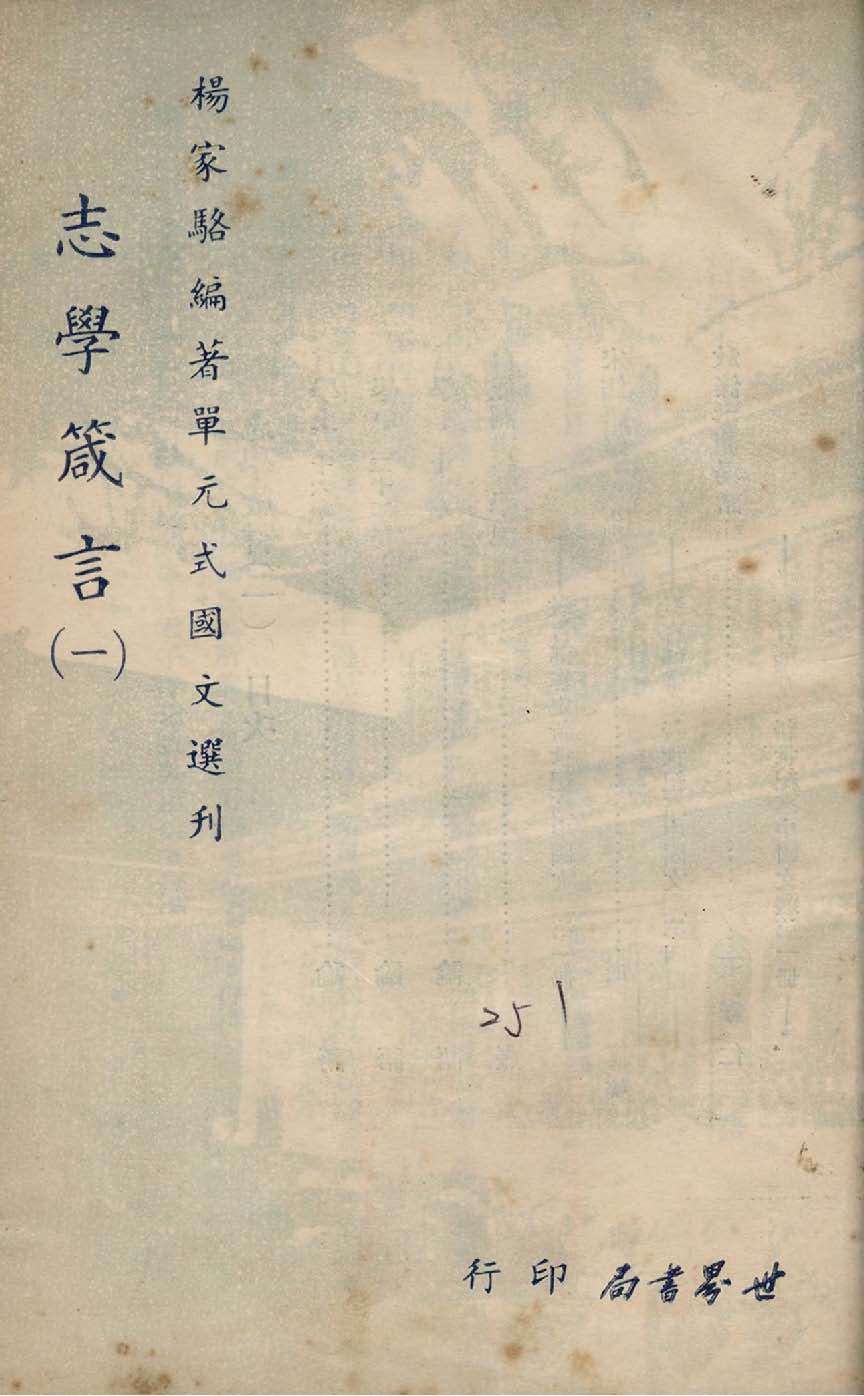 楊家駱編著單元式國文選刊
志學箴言(一)
251
世界書局印行